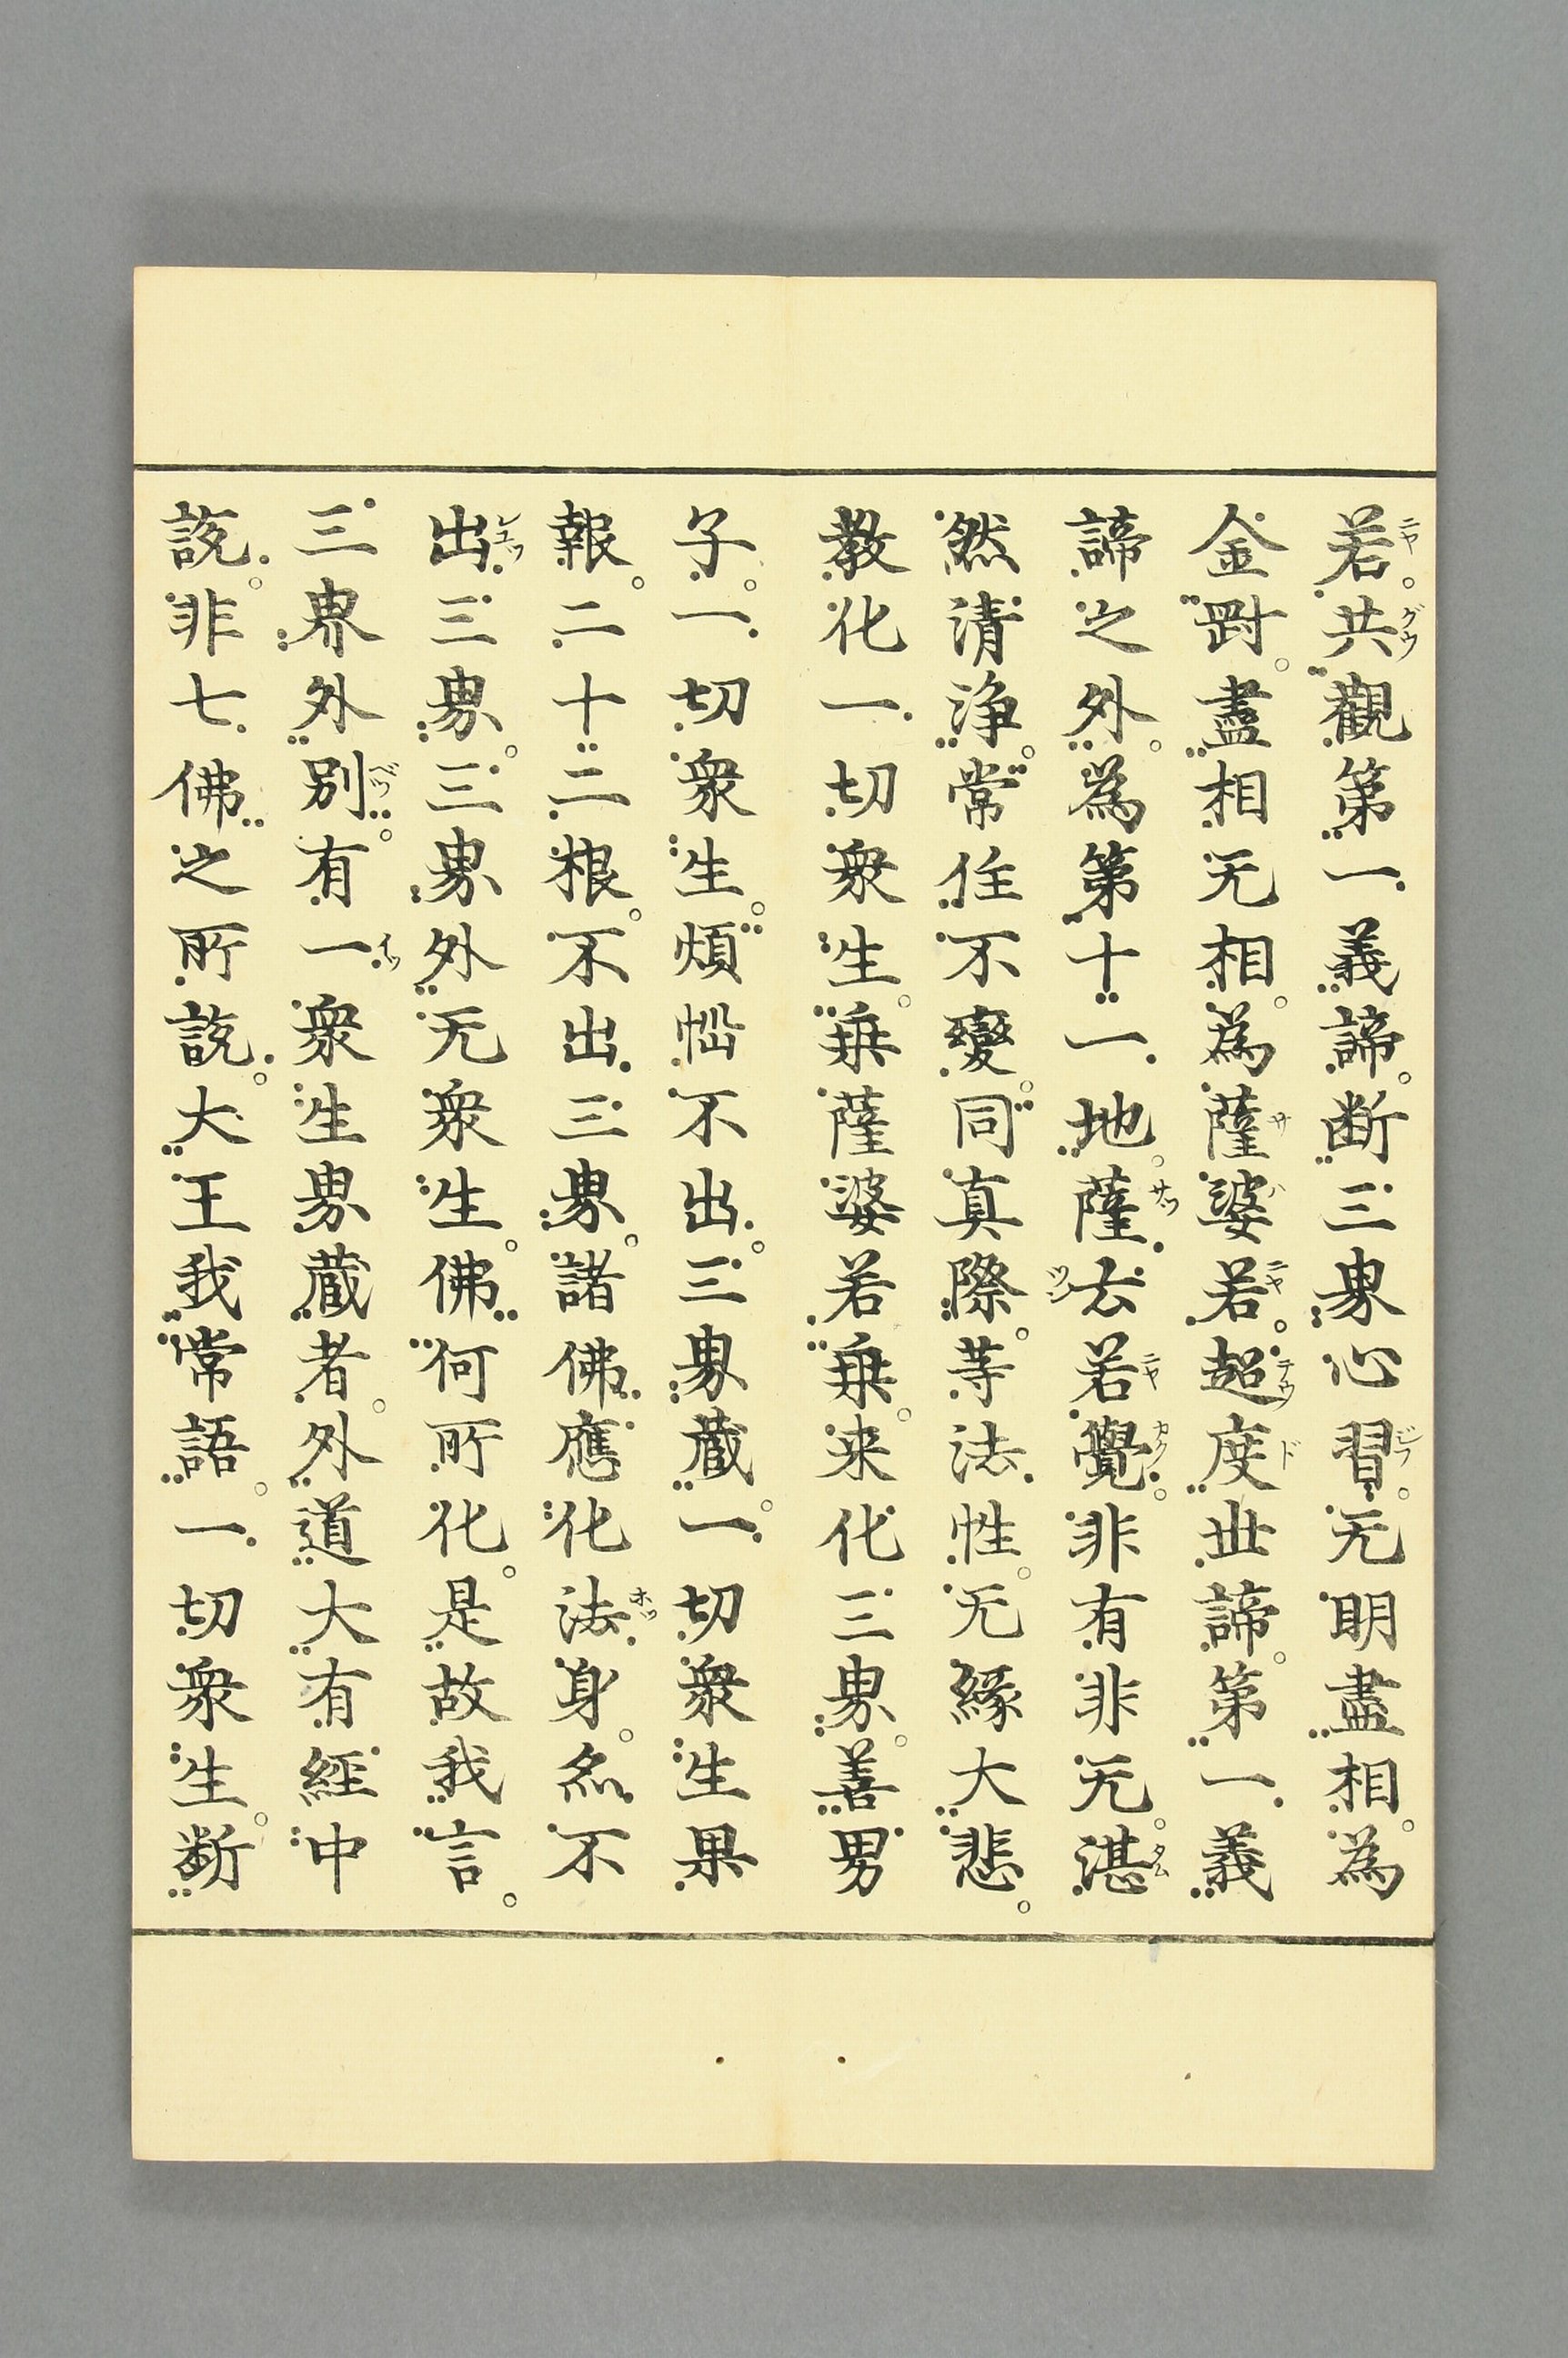 若。共觀第一義諦。断三界心習。无明盡相。為
金剛。盡相无相。為薩婆若。超度世諦。第一義
諦之外。為第十一地。薩云若覺。非有非无。湛
然清浄。常住不變。同真際。等法性。无縁大悲。
教化一切衆生。乗薩婆若乗。来化三界。善男
子。一切衆生。煩惱不出。三界蔵。一切衆生果
報。二十二根。不出三界。諸佛應化法身。亦不
出三界。三界外无衆生。佛何所化。是故我言。
三界外別。有一衆生界蔵者。外道大有經中
説。非七佛之所説。大王我常語。一切衆生。断